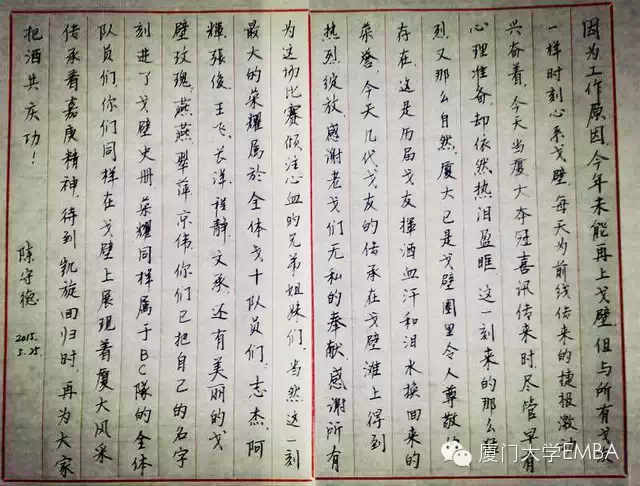 因为工作原因,今年未能再上戈壁,但与所有戈友
一样时刻心系戈壁,每天为前线传来的捷报激动
兴奋着,今天当厦大夺冠喜讯传来时,尽管早有
心理准备,却依然热泪盈眶,这一刻来的那么
烈,又那么自然.厦大已是戈壁圈里令人尊敬的
存在,这是历届戈友挥洒血汗和泪水换回来的
荣誉,今天几代戈友的传承在戈壁滩上得到
热烈绽放.感谢老戈们无私的奉献,感谢所有
为这场比赛倾注心血的兄弟姐妹们,当然这一刻
最大的荣耀属於全体戈十队员们,志杰,阿
辉,張俊,王飞,长洋,程静,文承,还有美丽的戈
壁玫瑰,燕燕,翠萍,京伟,你们已把自己的名字
刻进了戈壁史册,荣耀同样属于BC隊的全体
队员们,你们同样在戈壁上展现着厦大风采
传承着嘉庚精神,待到凯旋回归时,再为大家
把酒共庆功!
陈守德
2015.
5.25.
厦门大学EMBA